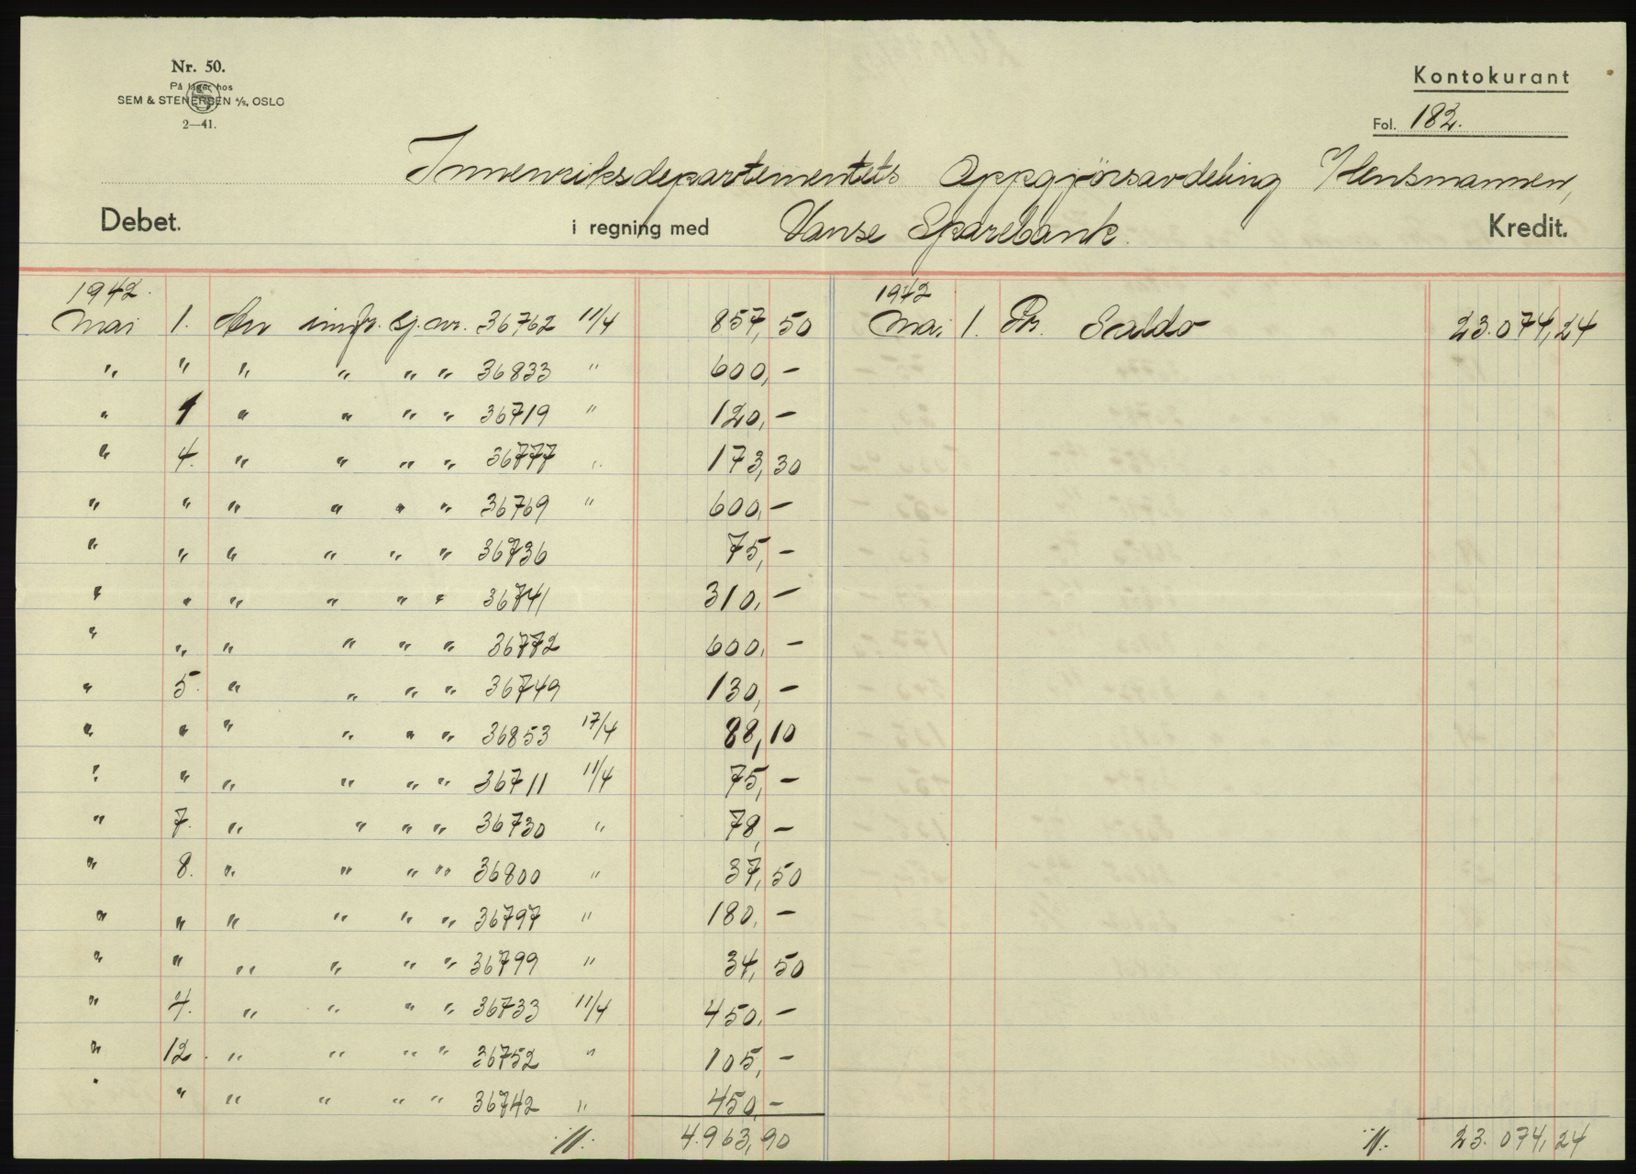 Nr. 50.
På lager hos
SEM & STENERSEN A/S, OSLO
2—41.
Kontokurant
Fol. 182.
Innenriksdepartementets Oppgjörsavdeling Hensmannen,
Debet. i regning med Vanse Sparebank. Kredit.
1942. 1942
Mai 1. An innfr. gj. nr. 36762 11/4 857,50 Mai 1. Pr. Saldo 23.074,24
" " " " " " 36833 " 600,-
" 1 " " " " 36719 " 120,-
" 4. " " " " 36777 " 173,30
" " " " " " 36769 " 600,-
" " " " " " 36736 75,-
" " " " " " 36741 310,-
" " " " " " 36772 600,-
" 5. " " " " 36749 130,-
" " " " " " 36853 17/4 88,10
" " " " " " 36711 11/4 75,-
" 7. " " " " 36730 " 78,-
" 8. " " " " 36800 " 37,50
" " " " " " 36797 " 180.-
" " " " " " 36799 " 34,50
" 4. " " " " 36733 11/4 450,-
" 12. " " " " 36752 " 105,-
" " " " " " 36742 " 450,-
4.963,90 23.074,24